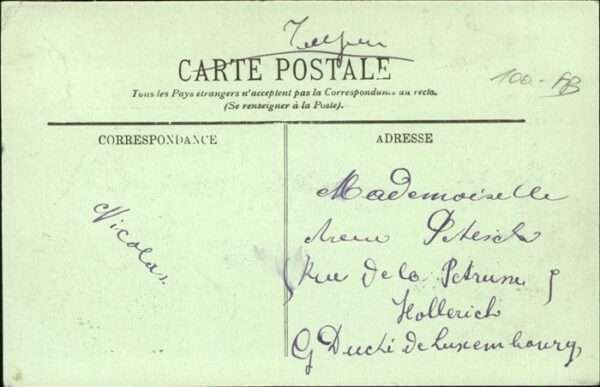 CARTE POSTALE
Tous les Pays étrangers n'acceptent pas la Correspondance au recto.
(Se renseigner à la Poste).
100.-
CORRESPONDANCE
ADRESSE
Nicolas
Mademoiselle
Rue de la Petrusse 5
Hollerich
G Duché de Luxembourg